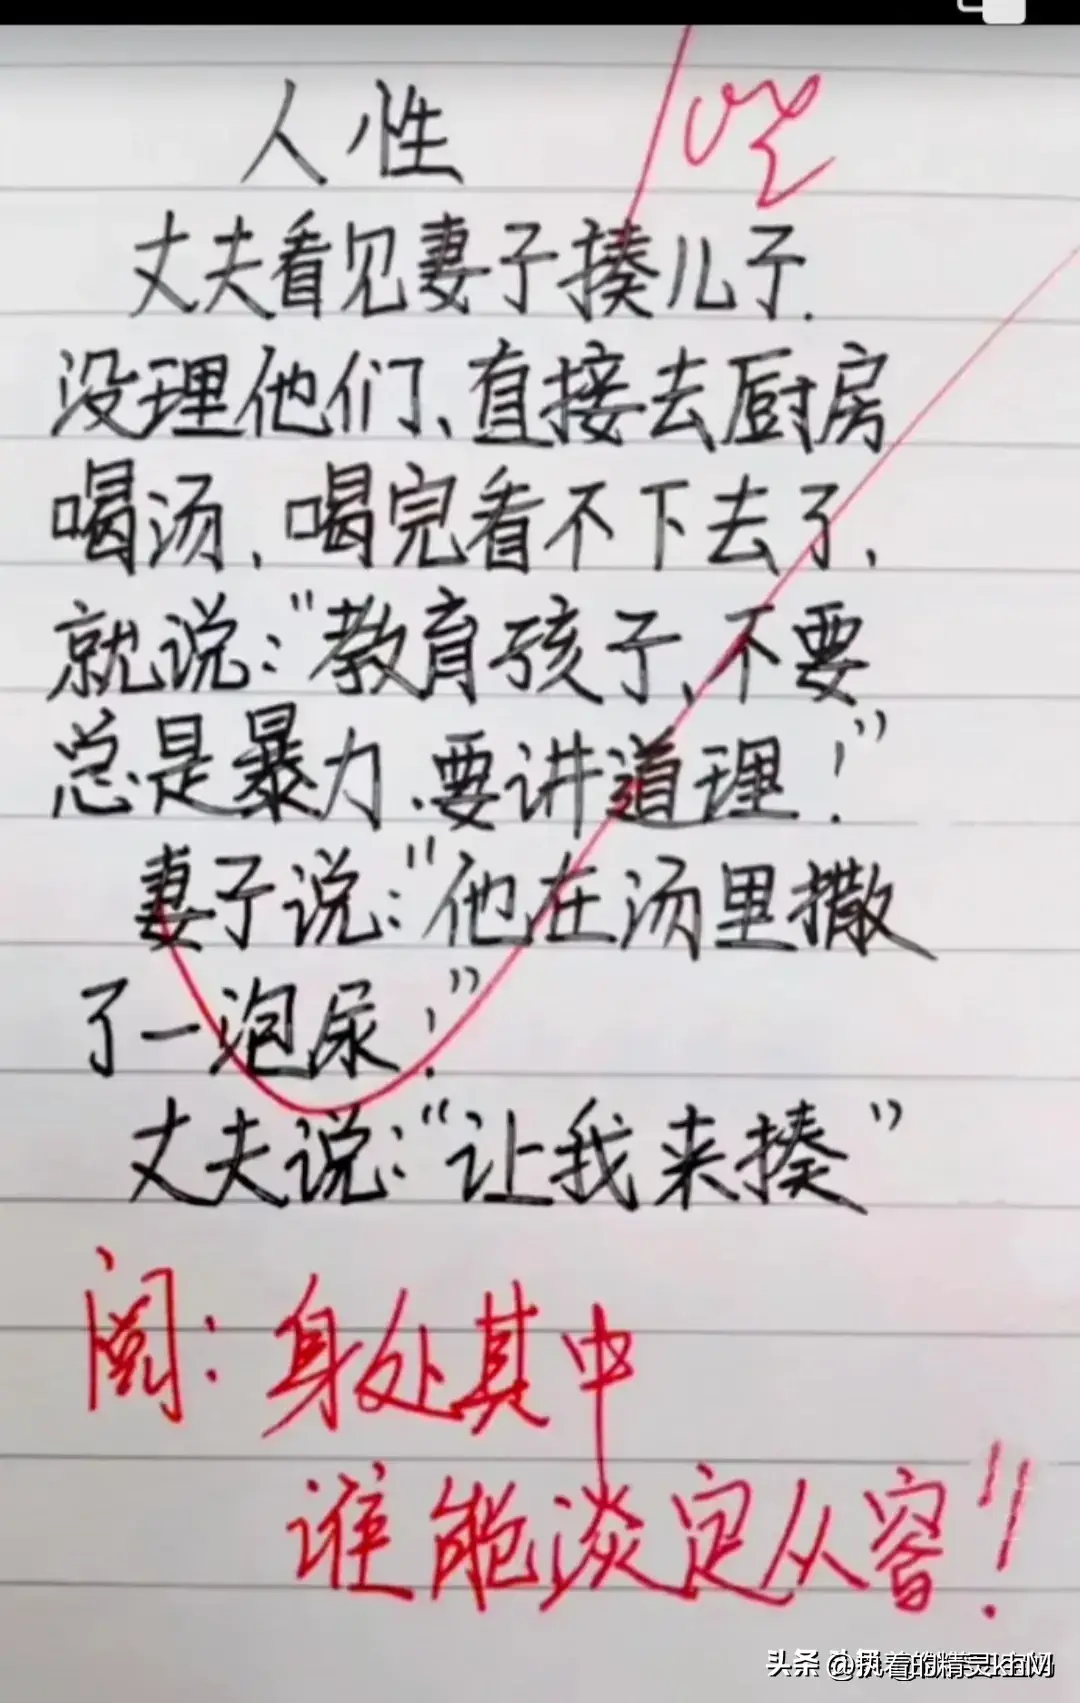 人性
丈夫看见妻子揍儿子.
没理他们、直接去厨房
喝汤、喝完看不下去了、
就说:"教育孩子、不要
总是暴力、要讲道理!"
妻子说:"他在汤里撒
了一泡尿!"
丈夫说:"让我来揍"
阅:身处其中
谁能淡定从容!!
头条 @执着的精灵